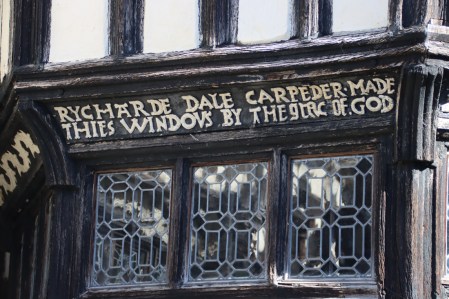 RYCHARDE DALE CARPEDER·MADE
THIES WINDOVS BY THE GRC OF·GOD